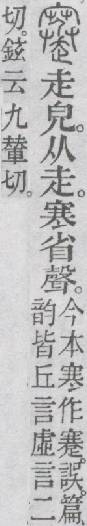 走皃。从走。寒省聲。
今本寒作蹇。誤。篇
韵皆丘言虛言二
切。鉉云九輦切。